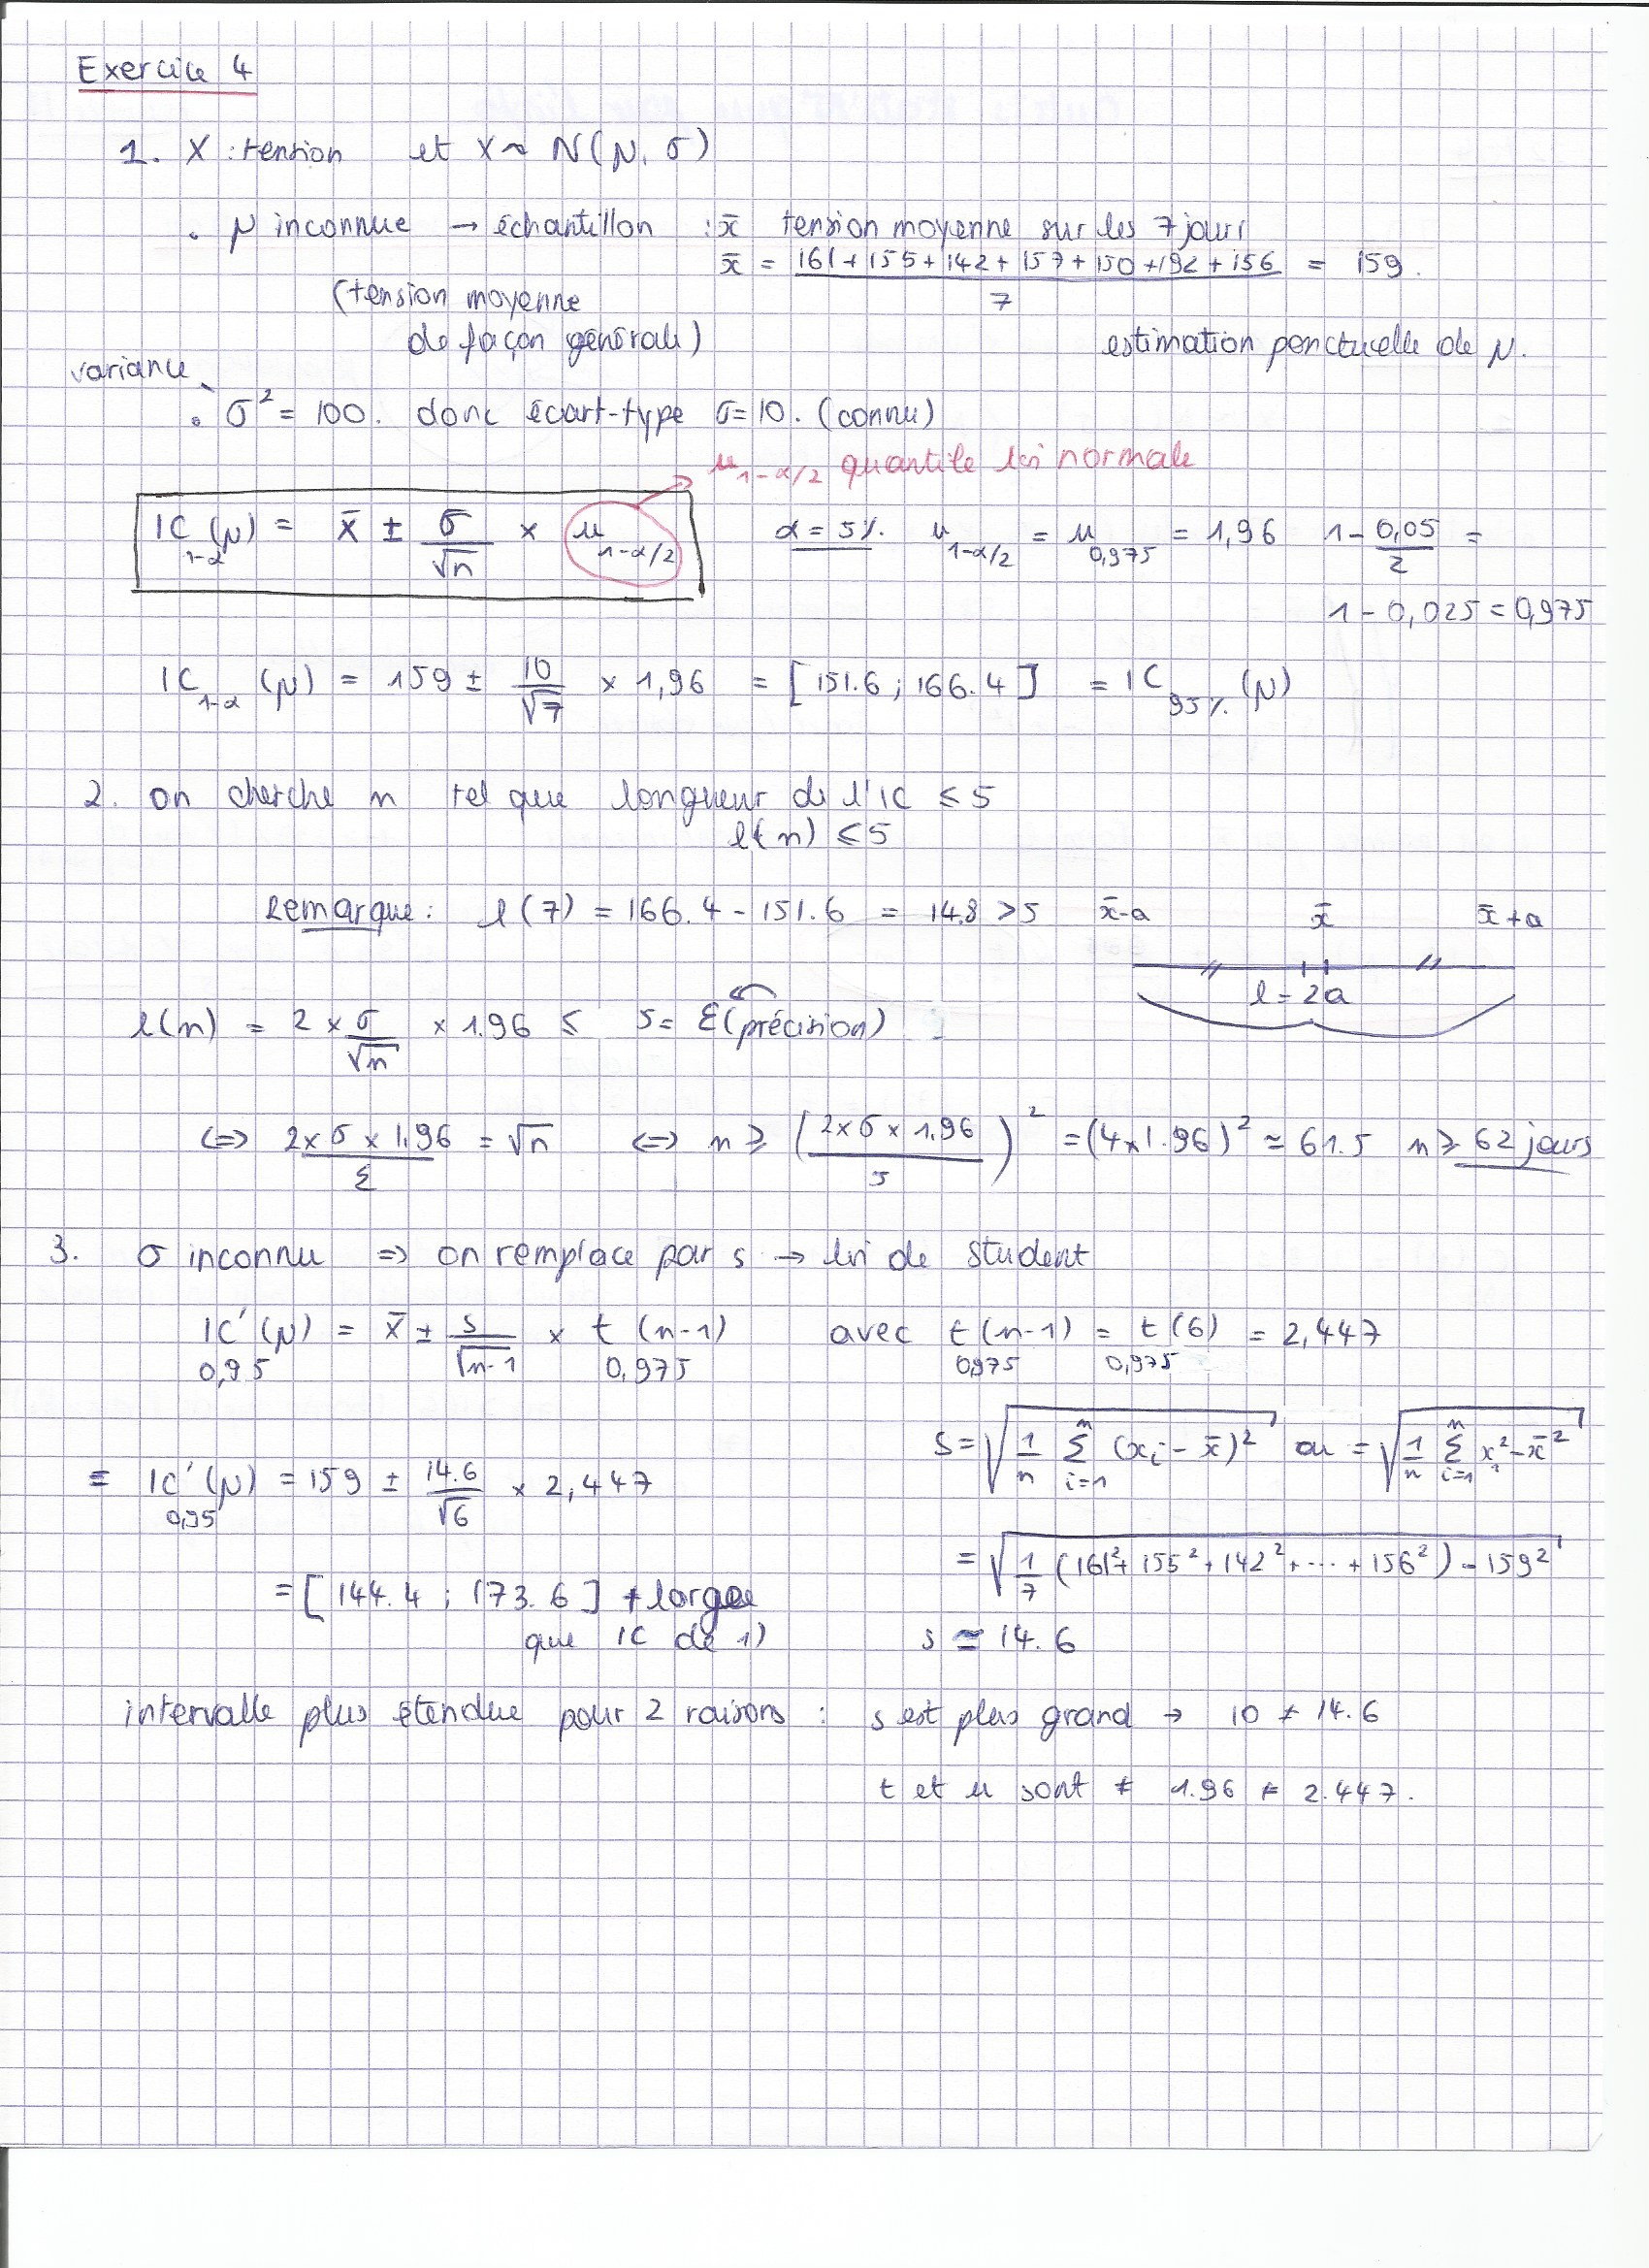 Exercice 4
1. X : tension et X ~ N(μ, σ)
. μ inconnue → échantillon : x̄ tension moyenne sur les 7 jours
x̄ = (161 + 155 + 142 + 157 + 150 + 192 + 156) / 7 = 159.
(tension moyenne
de façon générale)
estimation ponctuelle de μ.
variance
. σ² = 100. donc écart-type σ = 10. (connu)
u_{1-α/2} quantile loi normale
IC_{1-α}(μ) = x̄ ± σ/√n × u_{1-α/2}
α = 5%. u_{1-α/2} = u_{0,975} = 1,96
1 - 0,05/2 =
1 - 0,025 = 0,975
IC_{1-α}(μ) = 159 ± 10/√7 × 1,96 = [151.6 ; 166.4] = IC_{95%}(μ)
2. on cherche n tel que longueur de l'IC ≤ 5
l(n) ≤ 5
Remarque : l(7) = 166.4 - 151.6 = 14.8 > 5
x̄-a x̄ x̄+a
l = 2a
l(n) = 2 × σ/√n × 1.96 ≤ 5 = ε (précision)
<=> (2 × σ × 1,96)/ε = √n <=> n ≥ ((2 × σ × 1,96)/5)² = (4 × 1.96)² ≃ 61.5 n ≥ 62 jours
3. σ inconnu => on remplace par s → loi de student
IC'_{0,95}(μ) = x̄ ± s/√(n-1) × t_{0,975}(n-1) avec t_{0,975}(n-1) = t_{0,975}(6) = 2,447
s = √(1/n Σ_{i=1}^{n} (x_i - x̄)²) ou = √(1/n Σ_{i=1}^{n} x_i² - x̄²)
= IC'_{0,95}(μ) = 159 ± 14.6/√6 × 2,447
= √(1/7 (161² + 155² + 142² + ... + 156²) - 159²)
= [144.4 ; 173.6] + large
que IC de 1)
s ≃ 14.6
intervalle plus étendue pour 2 raisons : s est plus grand → 10 ≠ 14.6
t et u sont ≠ 1.96 ≠ 2.447.